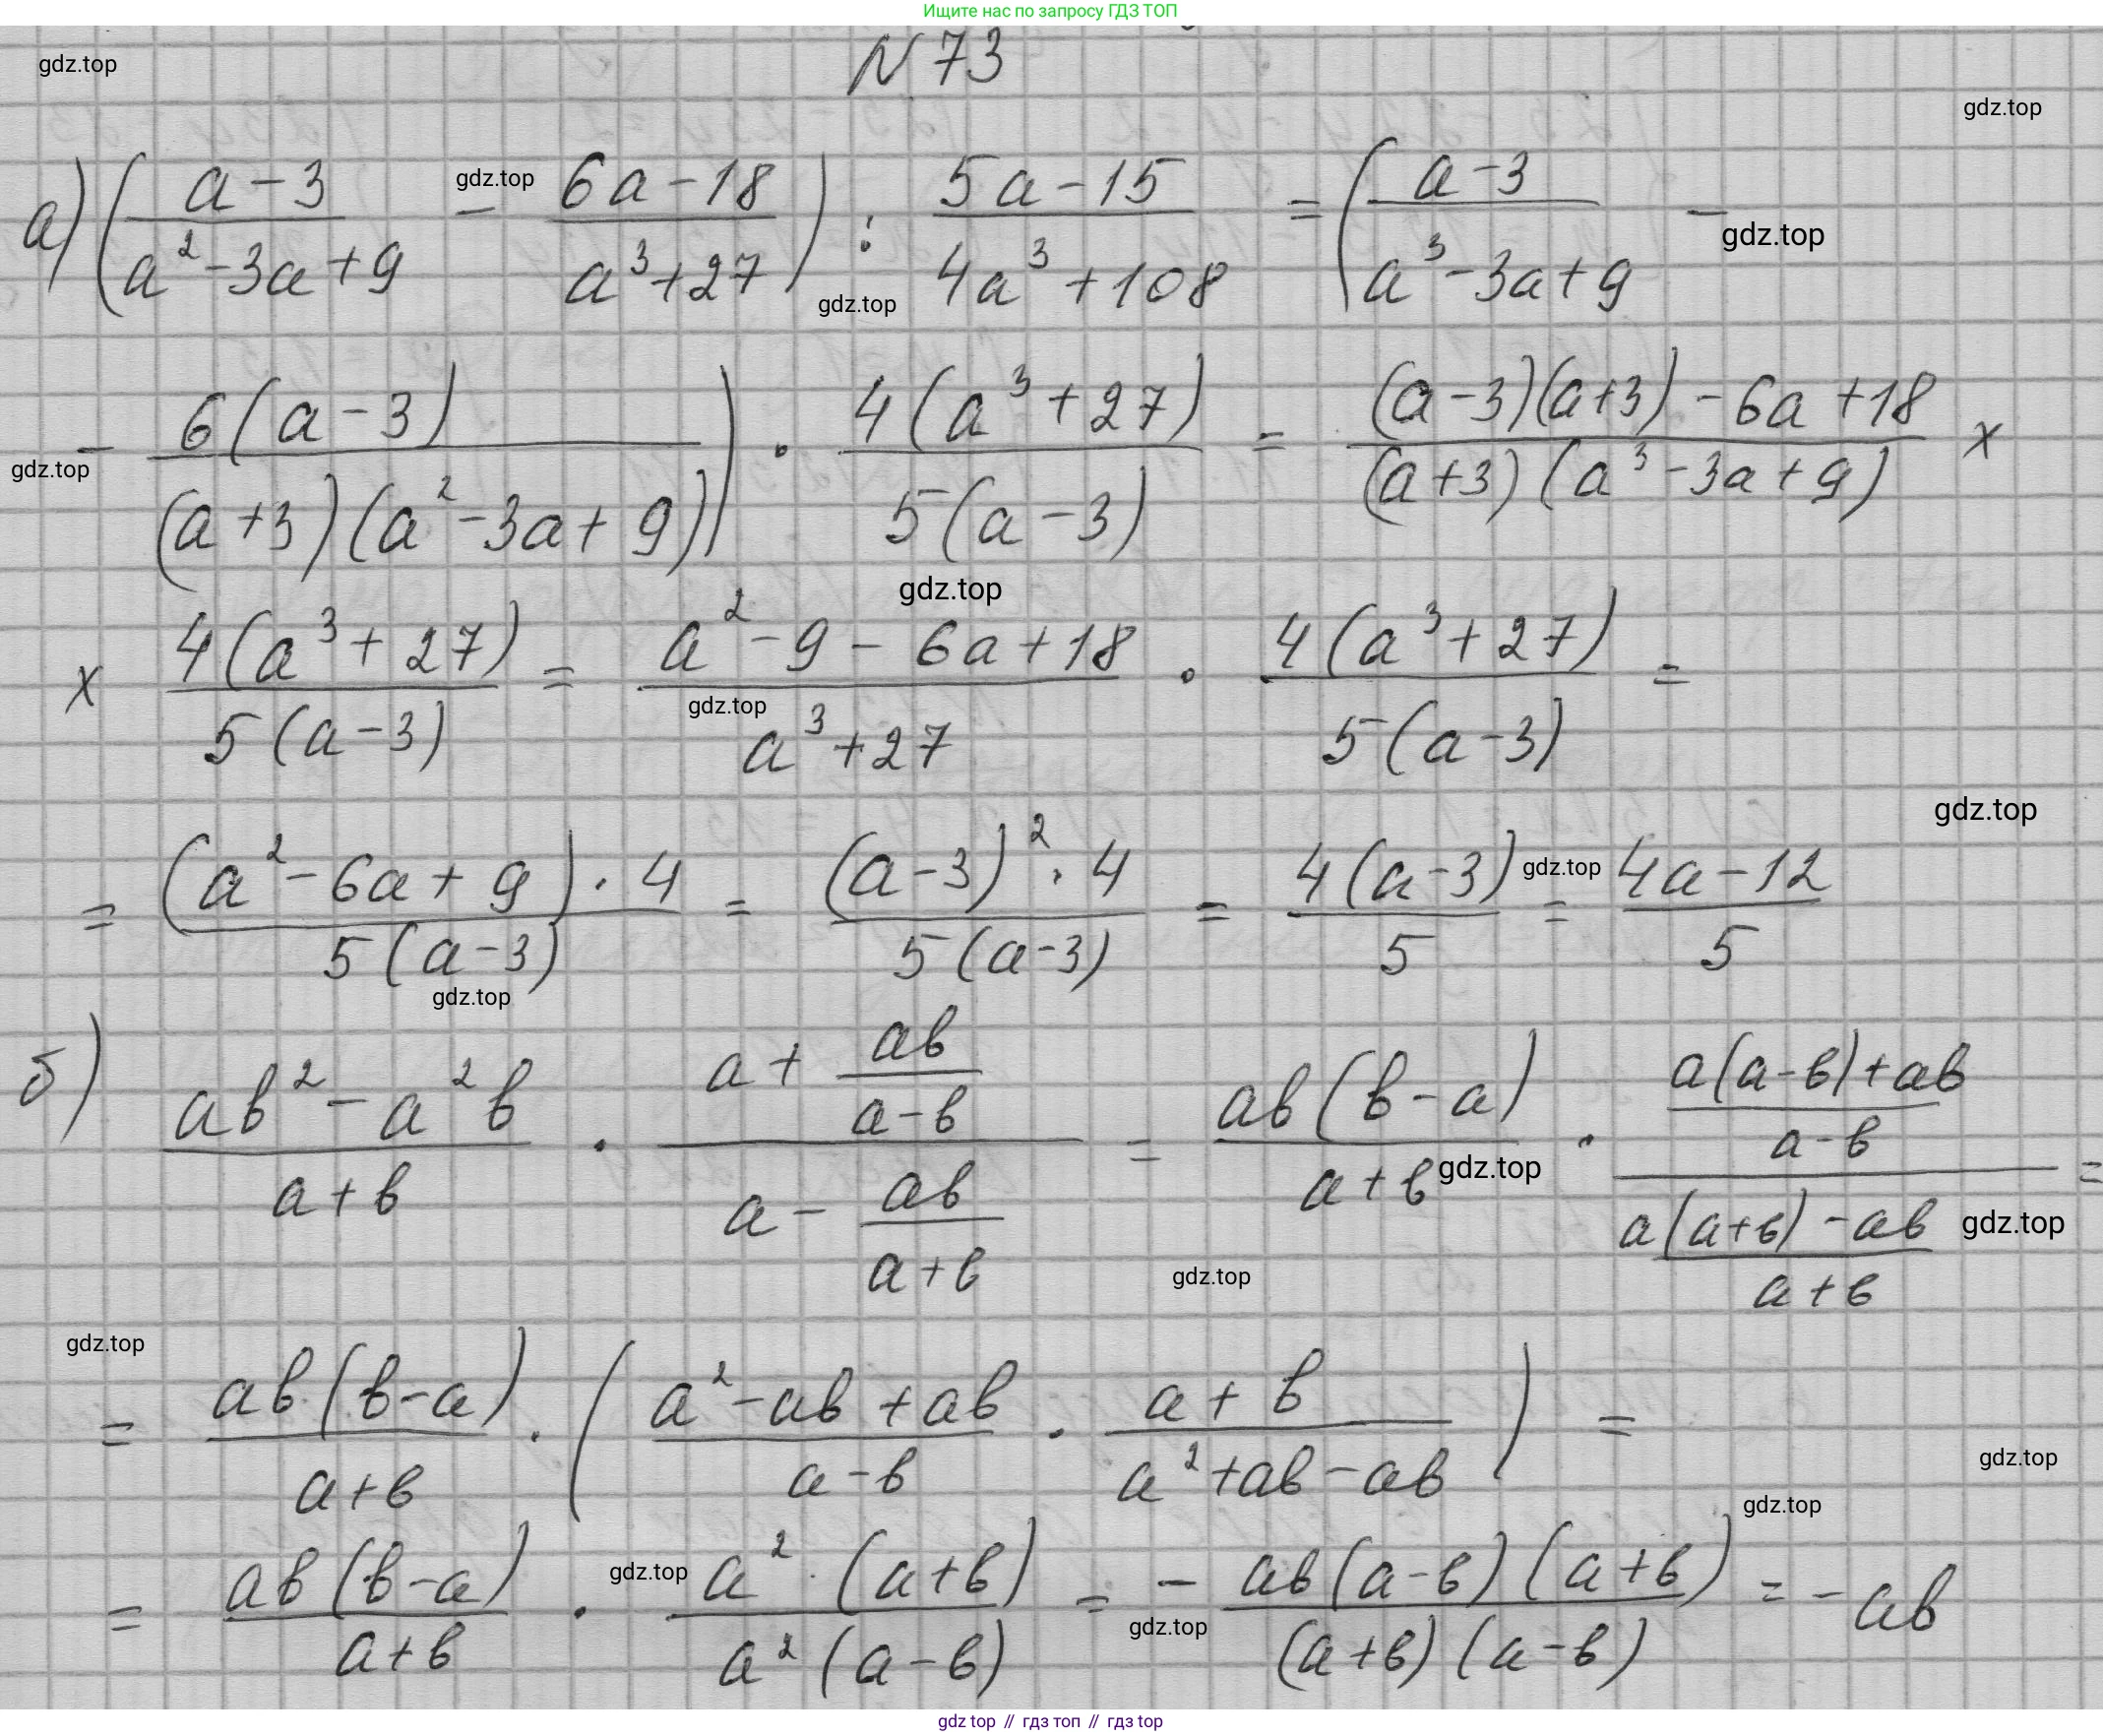 Ищите нас по запросу ГДЗ ТОП
N 73
gdz.top
gdz.top
а) ((a-3)/(a²-3a+9) - (6a-18)/(a³+27)) : (5a-15)/(4a³+108) = ((a-3)/(a³-3a+9) -
gdz.top
gdz.top
gdz.top
- 6(a-3)/((a+3)(a²-3a+9))) · 4(a³+27)/(5(a-3)) = ((a-3)(a+3)-6a+18)/((a+3)(a³-3a+9)) x
gdz.top
gdz.top
x 4(a³+27)/(5(a-3)) = (a²-9-6a+18)/(a³+27) · 4(a³+27)/(5(a-3)) =
gdz.top
gdz.top
= (a²-6a+9)·4/(5(a-3)) = (a-3)²·4/(5(a-3)) = 4(a-3)/5 = (4a-12)/5
gdz.top
gdz.top
б) (ab²-a²b)/(a+b) · (a+ab/(a-b))/(a-ab/(a+b)) = ab(b-a)/(a+b) · ((a(a-b)+ab)/(a-b))/((a(a+b)-ab)/(a+b)) =
gdz.top
gdz.top
gdz.top
gdz.top
= ab(b-a)/(a+b) · ((a²-ab+ab)/(a-b) · (a+b)/(a²+ab-ab)) =
gdz.top
gdz.top
= ab(b-a)/(a+b) · a²·(a+b)/(a²(a-b)) = - ab(a-b)(a+b)/((a+b)(a-b)) = -ab
gdz.top
gdz.top
gdz top // гдз топ // гдз top